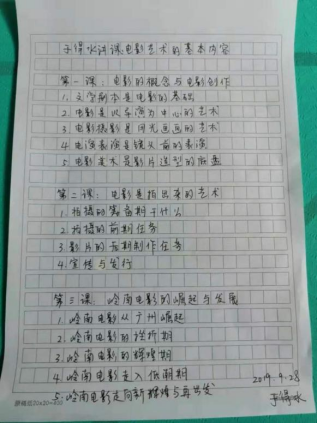 于得水试谈电影艺术的基本内容
第一课：电影的概念与电影创作
1.文学剧本是电影的基础
2.电影是以导演为中心的艺术
3.电影摄影是用光画画的艺术
4.电演表演是镜头前的表演
5.电影美术是影片造型的底盘
第二课：电影是拍出来的艺术
1.拍摄的筹备期干什么
2.拍摄的前期任务
3.影片的后期制作任务
4.宣传与发行
第三课：岭南电影的崛起与发展
1.岭南电影从广州崛起
2.岭南电影的挫折期
3.岭南电影的辉煌期
4.岭南电影走入低潮期
5.岭南电影走向新辉煌与再出发
2019.9.28
于得水
20×20=400